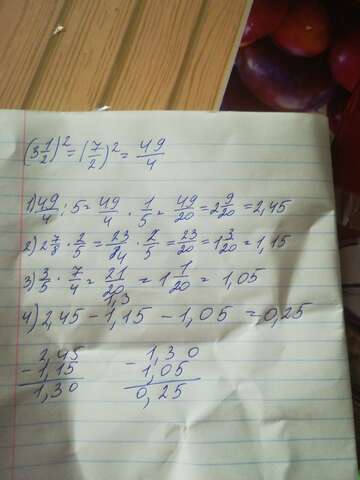 (3 1/2)² = (7/2)² = 49/4
1) 49/4 : 5 = 49/4 · 1/5 = 49/20 = 2 9/20 = 2,45
2) 2 7/8 · 2/5 = 23/84 · 2/5 = 23/20 = 1 3/20 = 1,15
3) 3/5 · 7/4 = 21/20 = 1 1/20 = 1,05
1,3
4) 2,45 - 1,15 - 1,05 = 0,25
2,45 - 1,30
- 1,15 1,05
1,30 0,25